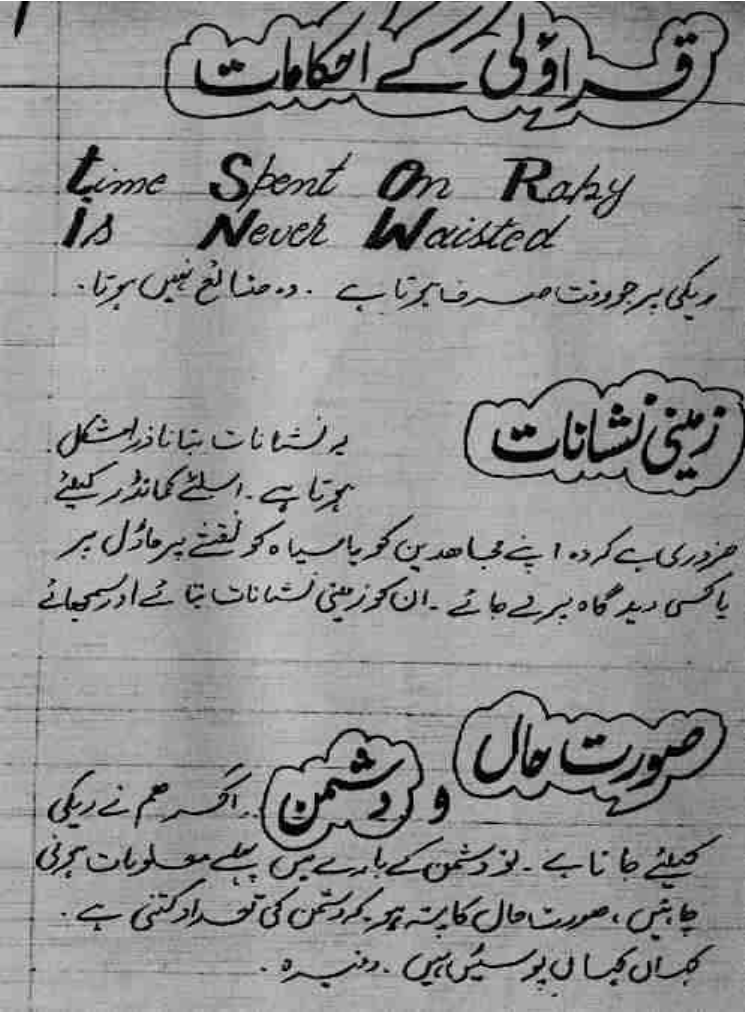 قراؤلی کے احکامات
time Spent On Rapy
Is Never Waisted
ریکی پر جو وقت صرف ہوتا ہے ۔ وہ ضائع نہیں ہوتا ۔
زمینی نشانات
یہ نشانات بتانا ذرا مشکل
ہوتا ہے ۔ اسلئے کمانڈر کیلئے
ضروری ہے کہ وہ اپنے مجاھدین کو یا سپاہ کو نقشے پر ماڈل پر
یا کسی دیدگاہ پر لے جائے ۔ ان کو زمینی نشانات بتائے اور سمجھائے
صورت حال
و دشمن ۔ اگر ھم نے ریکی
کیلئے جانا ہے ۔ تو دشمن کے بارے میں پہلے معلومات ہونی
چاہئیں ، صورت حال کا پتہ ہو کہ دشمن کی تعداد کتنی ہے ۔
کہاں کہاں پوسٹیں ہیں ۔ وغیرہ ۔